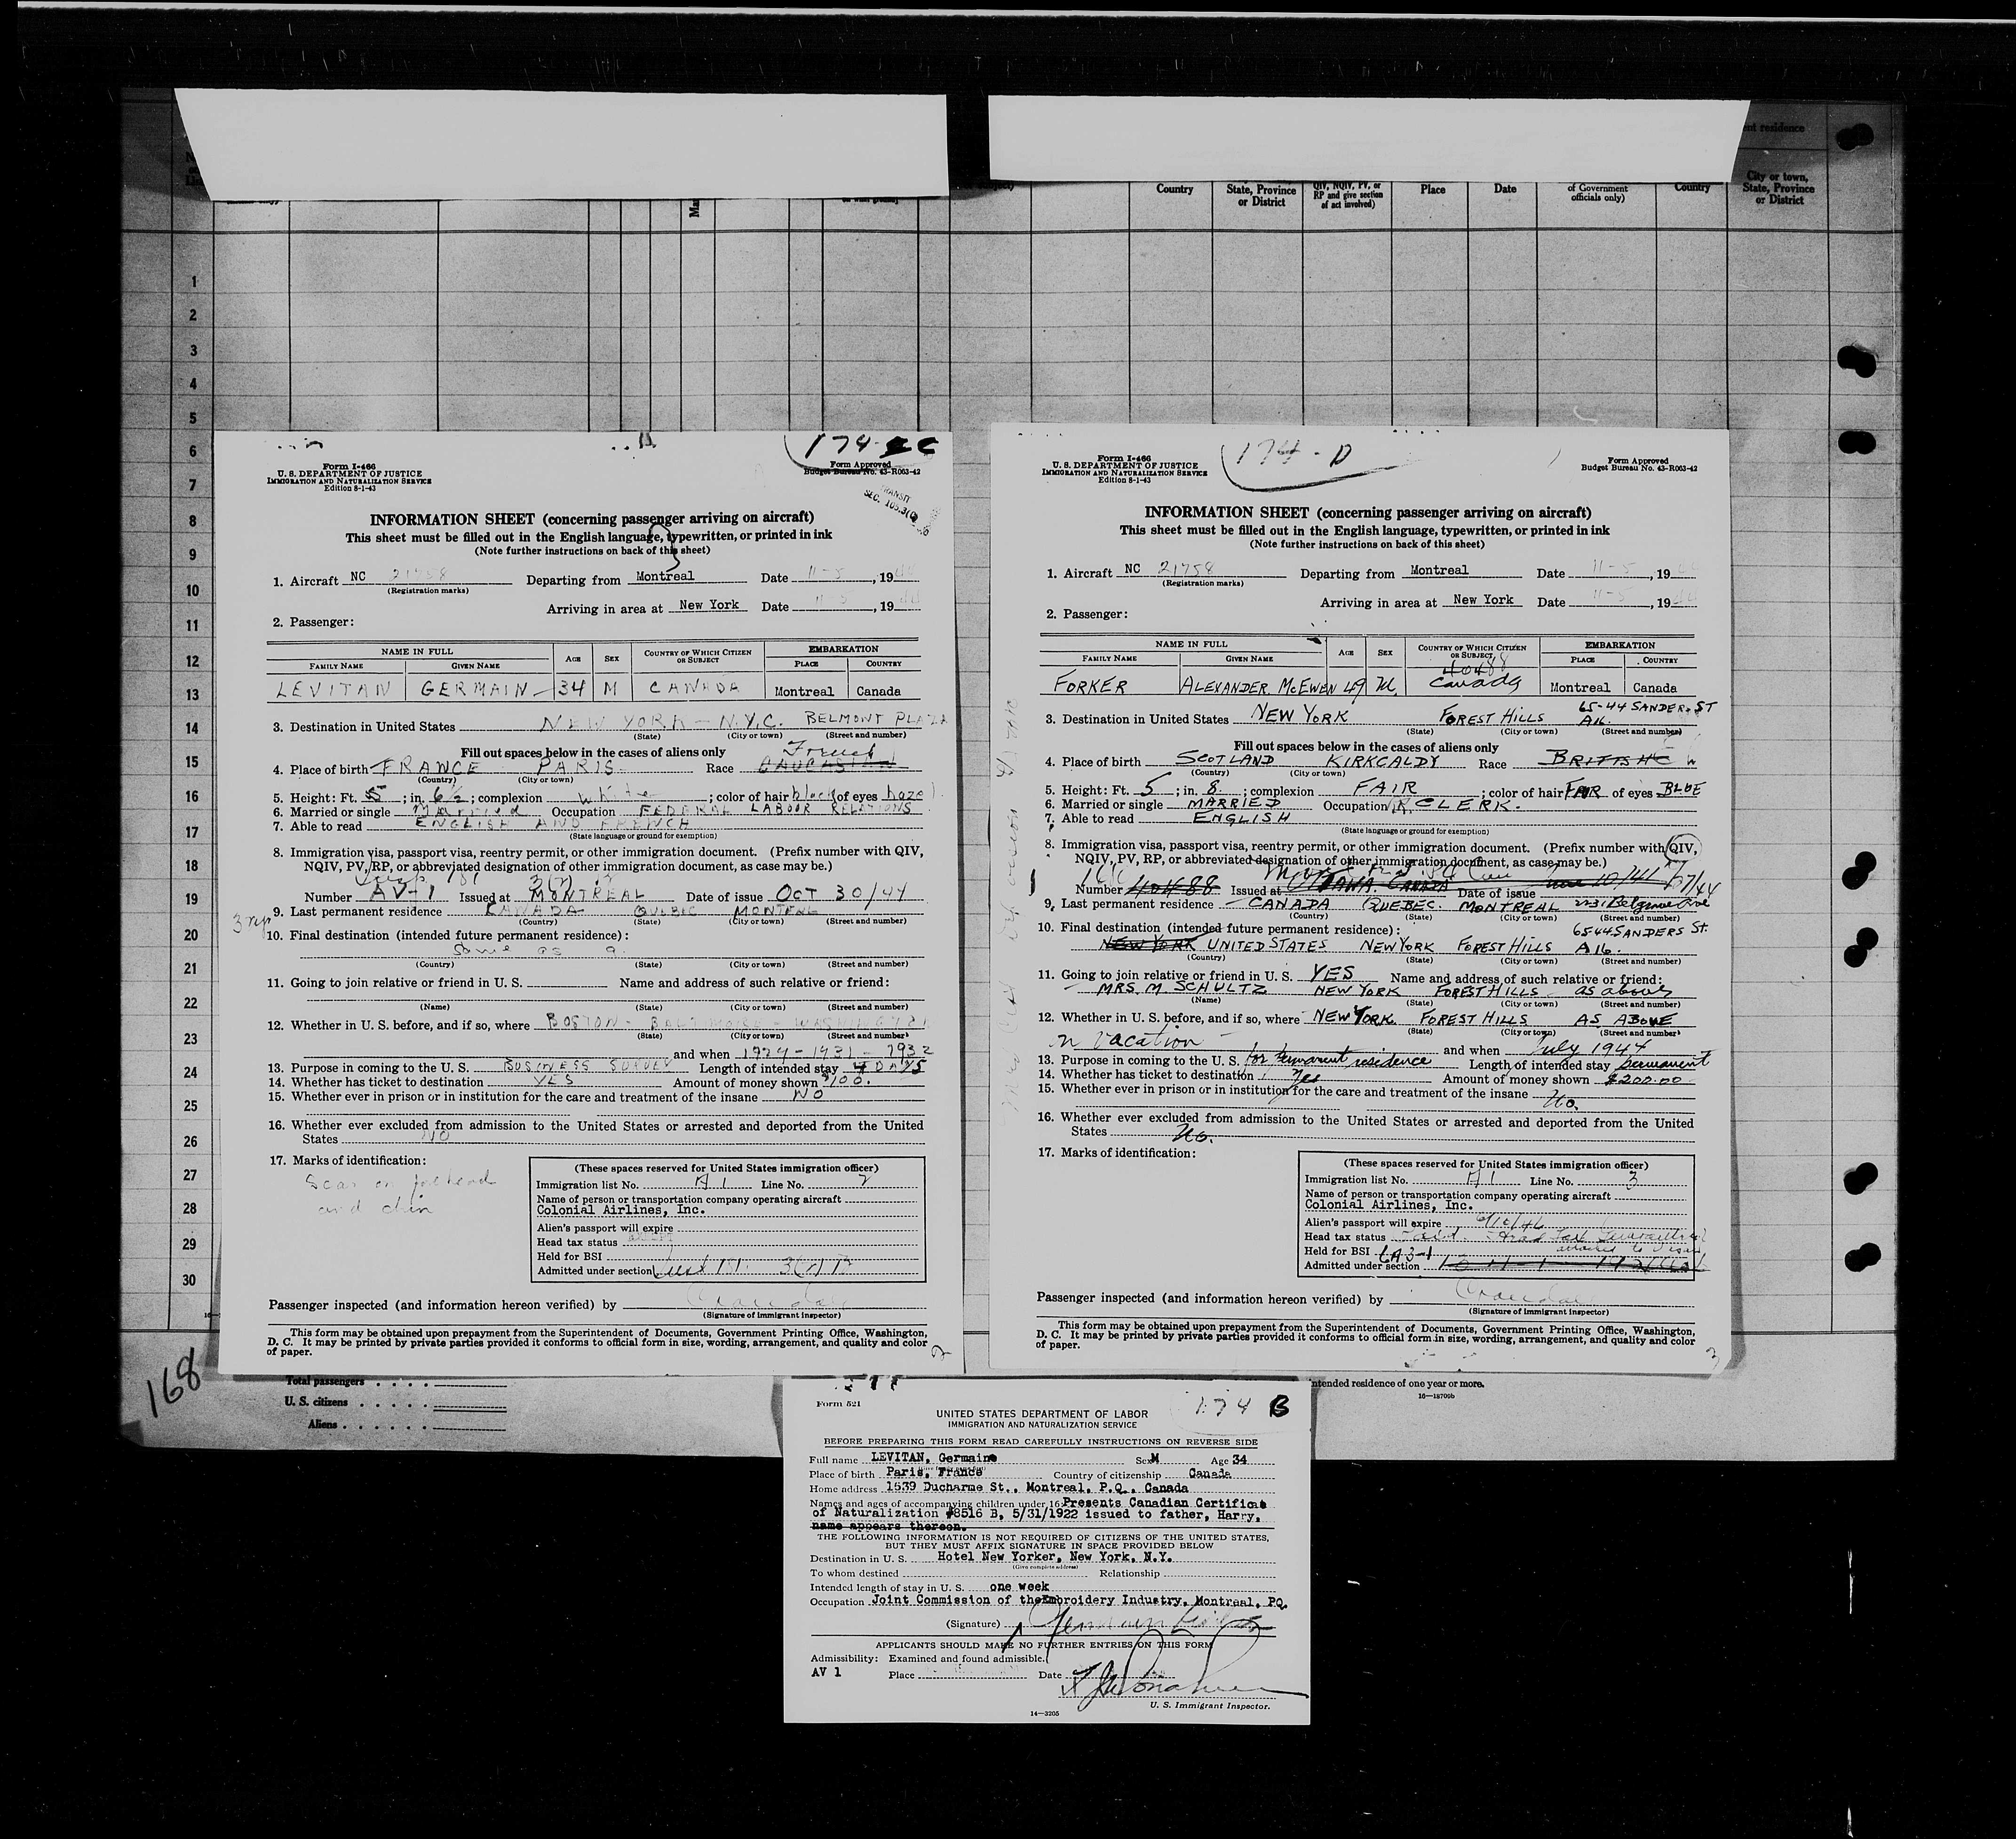 ent residence
Country
State, Province
or District
QIV, NQIV, PV, or
RP and give section
of act involved)
Place
Date
of Government
officials only)
Country
City or town,
State, Province
or District
1
2
3
4
5
6
7
8
9
10
11
12
13
14
15
16
17
18
19
20
21
22
23
24
25
26
27
28
29
30
174 C
Form I-466
U. S. DEPARTMENT OF JUSTICE
IMMIGRATION AND NATURALIZATION SERVICE
Edition 8-1-43
Form Approved
Budget Bureau No. 43-R063-42
TRANSIT
SEC. 103.3(
INFORMATION SHEET (concerning passenger arriving on aircraft)
This sheet must be filled out in the English language, typewritten, or printed in ink
(Note further instructions on back of this sheet)
1. Aircraft NC 21758 Departing from Montreal Date 11-5, 1944
(Registration marks)
Arriving in area at New York Date 11-5, 1944
2. Passenger:
NAME IN FULL AGE SEX COUNTRY OF WHICH CITIZEN OR SUBJECT EMBARKATION
FAMILY NAME GIVEN NAME PLACE COUNTRY
LEVITAN GERMAIN 34 M CANADA Montreal Canada
3. Destination in United States NEW YORK - N.Y.C. BELMONT PLAZA
(State) (City or town) (Street and number)
Fill out spaces below in the cases of aliens only
French
4. Place of birth FRANCE PARIS Race CAUCASIAN
(Country) (City or town)
5. Height: Ft. 5; in. 6½; complexion white; color of hair black of eyes hazel
6. Married or single Married Occupation FEDERAL LABOUR RELATIONS
7. Able to read ENGLISH AND FRENCH
(State language or ground for exemption)
8. Immigration visa, passport visa, reentry permit, or other immigration document. (Prefix number with QIV,
NQIV, PV, RP, or abbreviated designation of other immigration document, as case may be.)
Number AV-1 Issued at MONTREAL Date of issue OCT 30/44
9. Last permanent residence CANADA QUEBEC MONTREAL
(Country) (State) (City or town) (Street and number)
10. Final destination (intended future permanent residence):
Same as 9.
(Country) (State) (City or town) (Street and number)
11. Going to join relative or friend in U. S. Name and address of such relative or friend:
(Name) (State) (City or town) (Street and number)
12. Whether in U. S. before, and if so, where BOSTON - BALTIMORE - WASHINGTON
(State) (City or town) (Street and number)
and when 1929 - 1931 - 1932
13. Purpose in coming to the U. S. BUSINESS SURVEY Length of intended stay 4 DAYS
14. Whether has ticket to destination YES Amount of money shown $100.
15. Whether ever in prison or in institution for the care and treatment of the insane NO
16. Whether ever excluded from admission to the United States or arrested and deported from the United
States NO
17. Marks of identification:
Scar on forehead
and chin
(These spaces reserved for United States immigration officer)
Immigration list No. A 1 Line No. 2
Name of person or transportation company operating aircraft
Colonial Airlines, Inc.
Alien's passport will expire
Head tax status
Held for BSI
Admitted under section
Passenger inspected (and information hereon verified) by
(Signature of immigrant inspector)
This form may be obtained upon prepayment from the Superintendent of Documents, Government Printing Office, Washington,
D. C. It may be printed by private parties provided it conforms to official form in size, wording, arrangement, and quality and color
of paper.
2
174 - D
Form I-466
U. S. DEPARTMENT OF JUSTICE
IMMIGRATION AND NATURALIZATION SERVICE
Edition 8-1-43
Form Approved
Budget Bureau No. 43-R063-42
INFORMATION SHEET (concerning passenger arriving on aircraft)
This sheet must be filled out in the English language, typewritten, or printed in ink
(Note further instructions on back of this sheet)
1. Aircraft NC 21758 Departing from Montreal Date 11-5, 1944
(Registration marks)
Arriving in area at New York Date 11-5, 1944
2. Passenger:
NAME IN FULL AGE SEX COUNTRY OF WHICH CITIZEN OR SUBJECT EMBARKATION
FAMILY NAME GIVEN NAME PLACE COUNTRY
40488
FORKER ALEXANDER McEWEN 49 M. Canada Montreal Canada
65-44 SANDERS ST
3. Destination in United States NEW YORK FOREST HILLS A16.
(State) (City or town) (Street and number)
Fill out spaces below in the cases of aliens only
4. Place of birth SCOTLAND KIRKCALDY Race BRITISH W
(Country) (City or town)
5. Height: Ft. 5; in. 8.; complexion FAIR; color of hair FAIR of eyes BLUE
6. Married or single MARRIED Occupation CLERK.
7. Able to read ENGLISH
(State language or ground for exemption)
8. Immigration visa, passport visa, reentry permit, or other immigration document. (Prefix number with QIV,
NQIV, PV, RP, or abbreviated designation of other immigration document, as case may be.)
Number 40488 Issued at OTTAWA. CANADA Date of issue June 10/41
9. Last permanent residence CANADA QUEBEC. MONTREAL Belgrave Ave
(Country) (State) (City or town) (Street and number)
10. Final destination (intended future permanent residence): 6544 SANDERS St.
NEW YORK UNITED STATES NEW YORK FOREST HILLS A16.
(Country) (State) (City or town) (Street and number)
11. Going to join relative or friend in U. S. YES Name and address of such relative or friend:
MRS. M. SCHULTZ NEW YORK FOREST HILLS as above
(Name) (State) (City or town) (Street and number)
12. Whether in U. S. before, and if so, where NEW YORK. FOREST HILLS AS ABOVE
(State) (City or town) (Street and number)
on vacation and when July 1944
13. Purpose in coming to the U. S. for permanent residence Length of intended stay permanent
14. Whether has ticket to destination Yes Amount of money shown $200.00
15. Whether ever in prison or in institution for the care and treatment of the insane No.
16. Whether ever excluded from admission to the United States or arrested and deported from the United
States No.
17. Marks of identification:
(These spaces reserved for United States immigration officer)
Immigration list No. A 1 Line No. 3
Name of person or transportation company operating aircraft
Colonial Airlines, Inc.
Alien's passport will expire 6/10/46
Head tax status
Held for BSI
Admitted under section
Passenger inspected (and information hereon verified) by
(Signature of immigrant inspector)
This form may be obtained upon prepayment from the Superintendent of Documents, Government Printing Office, Washington,
D. C. It may be printed by private parties provided it conforms to official form in size, wording, arrangement, and quality and color
of paper.
3
168
Total passengers
U. S. citizens
Aliens
ntended residence of one year or more.
16—18709b
Form 521
174 B
UNITED STATES DEPARTMENT OF LABOR
IMMIGRATION AND NATURALIZATION SERVICE
BEFORE PREPARING THIS FORM READ CAREFULLY INSTRUCTIONS ON REVERSE SIDE
Full name LEVITAN, Germaine Sex M Age 34
Place of birth Paris, France Country of citizenship Canada
Home address 1539 Ducharme St., Montreal, P.Q., Canada
Names and ages of accompanying children under 16 Presents Canadian Certificate
of Naturalization #8516 B, 5/31/1922 issued to father, Harry,
name appears thereon.
THE FOLLOWING INFORMATION IS NOT REQUIRED OF CITIZENS OF THE UNITED STATES,
BUT THEY MUST AFFIX SIGNATURE IN SPACE PROVIDED BELOW
Destination in U. S. Hotel New Yorker, New York, N.Y.
(Give complete address)
To whom destined Relationship
Intended length of stay in U. S. one week
Occupation Joint Commission of the Embroidery Industry, Montreal, PQ.
(Signature)
APPLICANTS SHOULD MAKE NO FURTHER ENTRIES ON THIS FORM
Admissibility: Examined and found admissible.
AV 1 Place Date
U. S. Immigrant Inspector.
14—3205